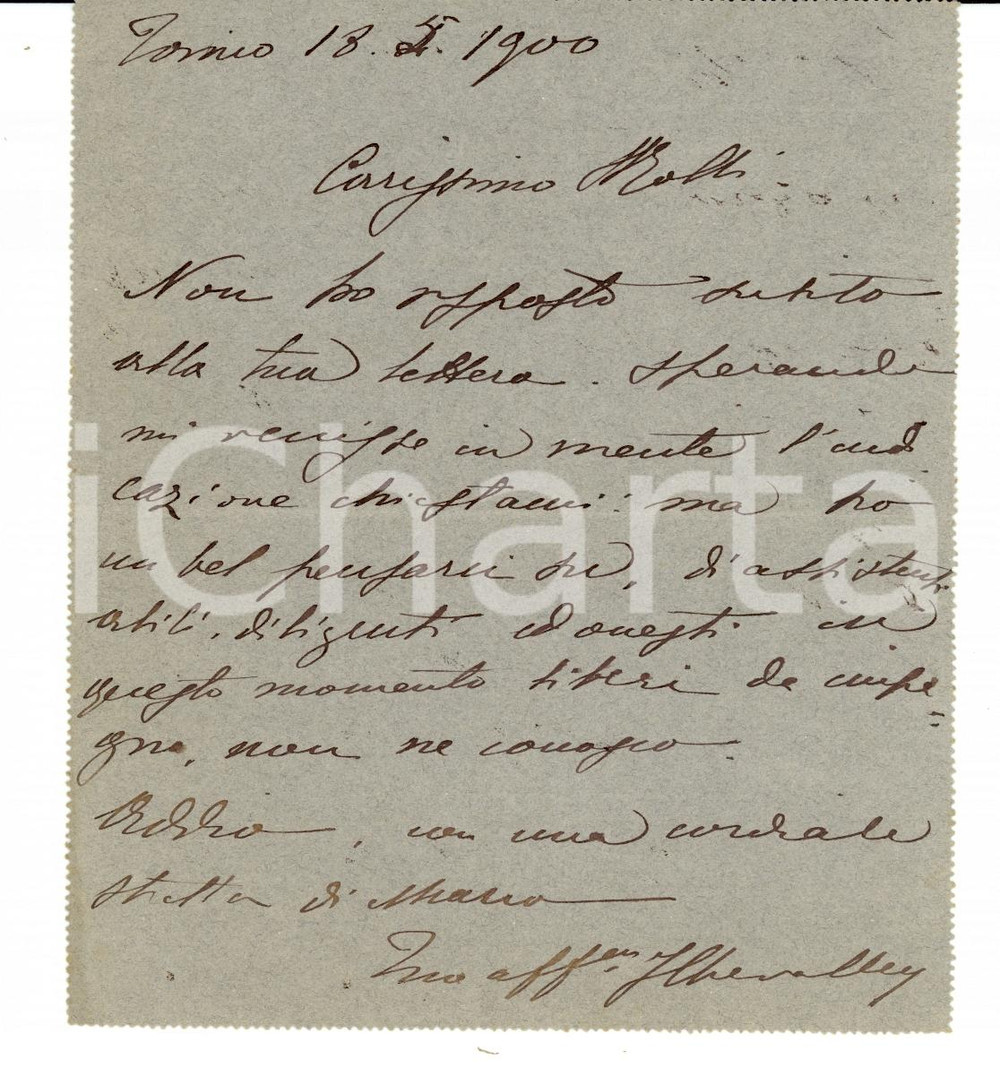 Torino 18. XI. 1900
Carissimo Molli
Non ho risposto subito
alla tua lettera. Sperando
mi venisse in mente l'indi
cazione chiestami: ma ho
un bel pensarci su, di assistenti
abili, diligenti ed onesti in
questo momento liberi da impe=
gno, non ne conosco.
Addio, con una cordiale
stretta di mano
Tuo aff.mo Chevalley
iCharta